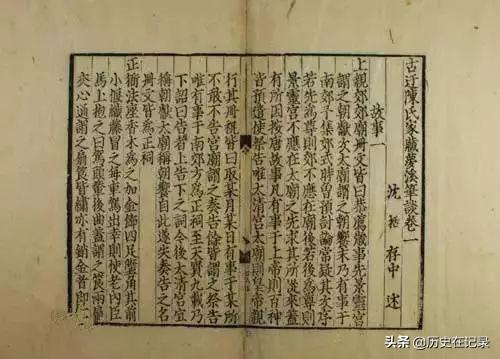 古迂陳氏家藏夢溪筆談卷一
沈括存中述
故事一
上親郊郊廟冊文皆曰恭薦歲事先景靈宮
謂之朝獻次太廟謂之朝饗末乃有事于
南郊予集郊式時曽預討論常疑其次序
若先為尊則郊不應在廟後若後為尊則
景靈宮不應在太廟之先求其所從來蓋
有所因按唐故事凡有事于上帝則百神
皆預遣使祭告唯太清宮太廟則皇帝親
行其冊祝皆曰取某月某日有事于某所
不敢不告宮廟謂之奏告餘皆謂之祭告
唯有事于南郊方為正祠至天寳九載乃
下詔曰告者上告下之詞今後太清宮宜
稱朝獻太廟稱朝饗自此遂失奏告之名
冊文皆為正祠
正衙法座香木為之加金飾四足墮角其前
小偃織藤冒之每車駕出幸則使老內臣
馬上抱之曰駕頭輦後曲蓋謂之筤兩扇
夾心通謂之扇筤皆繡亦有銷金者即古
头条 @历史在记录